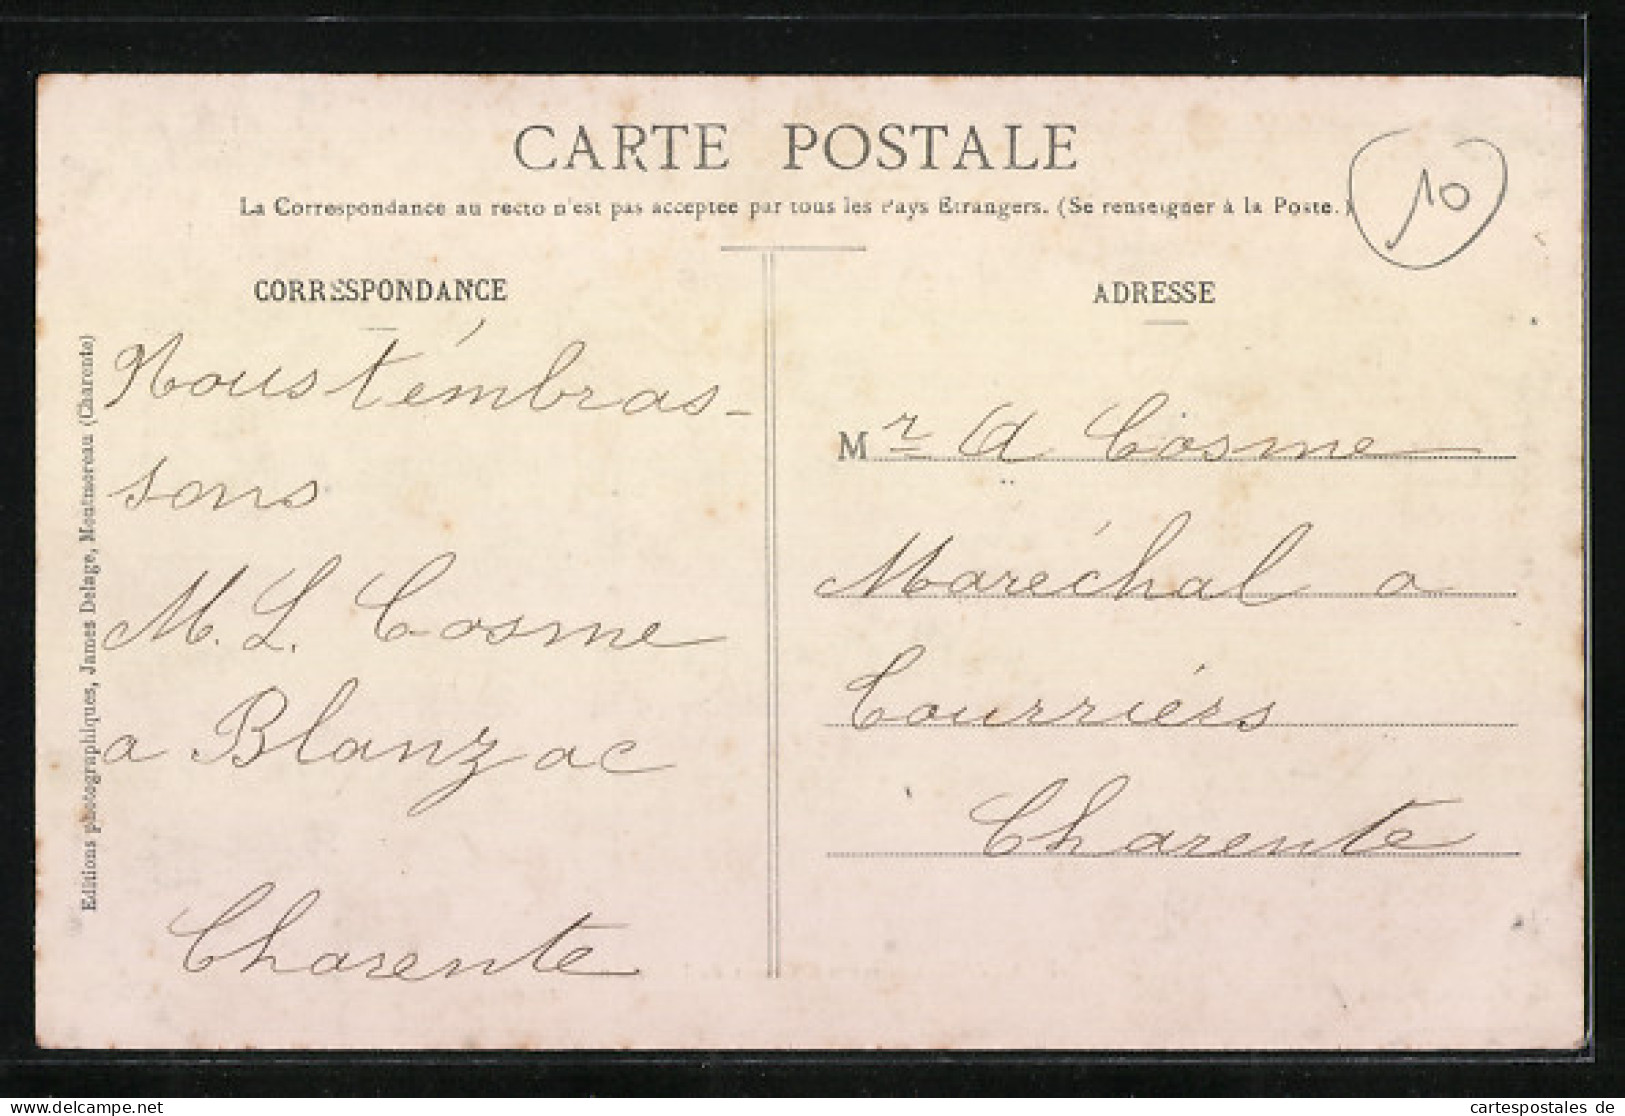 CARTE POSTALE
La Correspondance au recto n'est pas acceptée par tous les Pays Etrangers. (Se renseigner à la Poste.)
10
CORRESPONDANCE
ADRESSE
Nous t'émbras-
sons
M. L. Cosme
a Blanzac
Charente
Mr A Cosme
Maréchal a
Courriérs
Charente
Editions photographiques, James Delage, Montmoreau (Charente)
cartespostales de
cartespostales.de